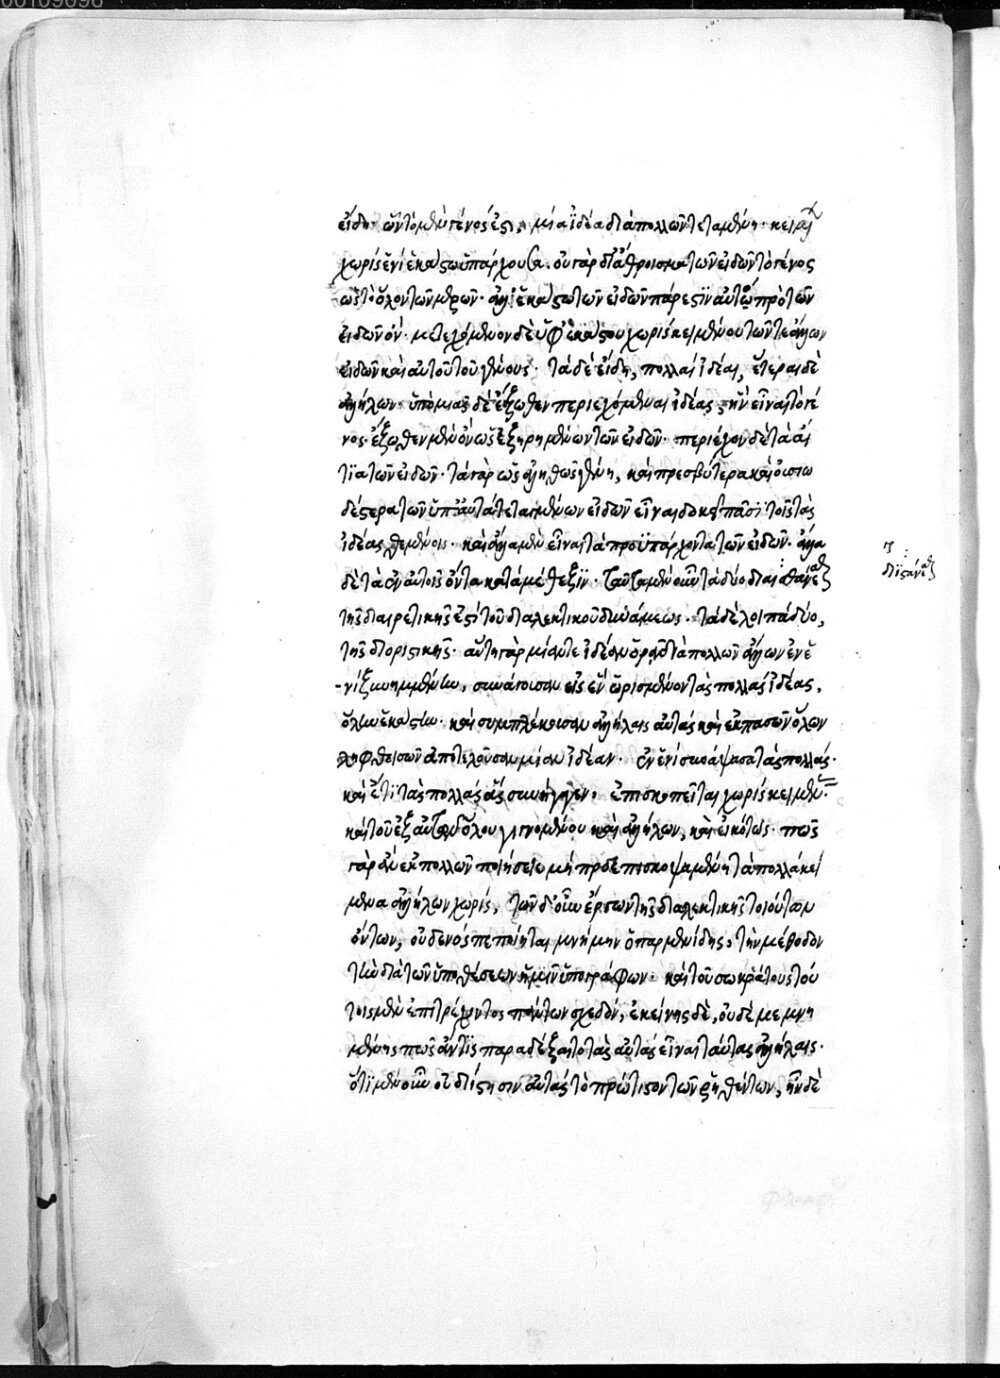 εἴδη· ὧν τὸ μὲν γένος ἐστι, μία ἰδέα διὰ πολλῶν τεταμένη· κειμ
χωρὶς ἑνὶ ἑκάστῳ ὑπάρχουσα. οὐ γὰρ ἄθροισμα τῶν εἰδῶν τὸ γένος
ὡς τὸ ὅλον τῶν μερῶν· ἀλλ' ἑκάστῳ τῶν εἰδῶν πάρεστιν αὐτῷ πρὸ τῶν
εἰδῶν ὄν· μετεχόμενον δὲ ὑφ' ἑκάστου χωρὶς κειμένου τῶν τε ἄλλων
εἰδῶν καὶ αὐτοῦ τοῦ γένους· τὰ δὲ εἴδη, πολλαὶ ἰδέαι, ἕτεραι δὲ
ἀλλήλων· ὑπὸ μιᾶς δὲ ἔξωθεν περιεχόμεναι ἰδέας ἣν εἶναι τὸ γέ
νος· ἔξωθεν μὲν ὂν ὡς ἐξῃρημένων τῶν εἰδῶν· περιέχον δὲ τὰ αἴ
τια τῶν εἰδῶν· τὰ γὰρ ὡς ἀληθῶς γένη, καὶ πρεσβύτερα καὶ οὐσιω
δέστερα τῶν ὑπ' αὐτὰ τεταγμένων εἰδῶν εἶναι δοκεῖ πᾶσι τοῖς τὰς
ἰδέας θεμένοις· καὶ ἄλλα μὲν εἶναι τὰ προϋπάρχοντα τῶν εἰδῶν· ἄλλα
δὲ τὰ ἐν αὐτοῖς ὄντα κατὰ μέθεξιν· ταῦτα μὲν οὖν τὰ δύο διαισθάνε
τῆς διαιρετικῆς ἐστι τοῦ διαλεκτικοῦ δυνάμεως· τὰ δὲ λοιπὰ δύο,
τῆς ὁριστικῆς· αὕτη γὰρ μίαν τε ἰδέαν ὁρᾷ διὰ πολλῶν ὅλων ἐν ἑ
νὶ ξυνημμένην, συνάγουσαν εἰς ἓν ὡρισμένον τὰς πολλὰς ἰδέας,
ὅλην ἑκάστην· καὶ συμπλέκουσαν ἀλλήλαις αὐτὰς καὶ ἐκ πασῶν ὅλων
ληφθεισῶν ἀποτελοῦσαν μίαν ἰδέαν· ἐν ἑνὶ συνάψασα τὰς πολλάς·
καὶ ἔτι τὰς πολλὰς ἃς συνήγαγεν, ἐπισκοπεῖται χωρὶς κειμέν
καὶ τοῦ ἐξ αὐτῶν ὅλου γινομένου καὶ ἀλλήλων, καὶ εἰκότως· πῶς
γὰρ ἂν ἐκ πολλῶν ποιήσειε μὴ προεπισκοψαμένη τὰ πολλὰ κεί
μενα ἀλλήλων χωρίς, τῶν δ' οὖν ἔργων τῆς διαλεκτικῆς τοιούτων
ὄντων, οὐδενός πεποίηται μνήμην ὁ παρμενίδης, τὴν μέθοδον
τὴν διὰ τῶν ὑποθέσεων ἡμῖν ὑπογράφων· καὶ τοῦ σωκράτους τού
τοις μὲν ἐπιτρέχοντος πάντων σχεδόν, ἐκείνης δὲ, οὐδὲ μεμνη
μένης πῶς ἄν τις παραδέξαιτο τὰς αὐτὰς εἶναι ταύτας ἀλλήλαις·
ὅτι μὲν οὖν διΐστησιν αὐτὰς τὸ πρώτιστον τῶν ῥηθέντων, ἦν δὲ
διϊσάνεθ